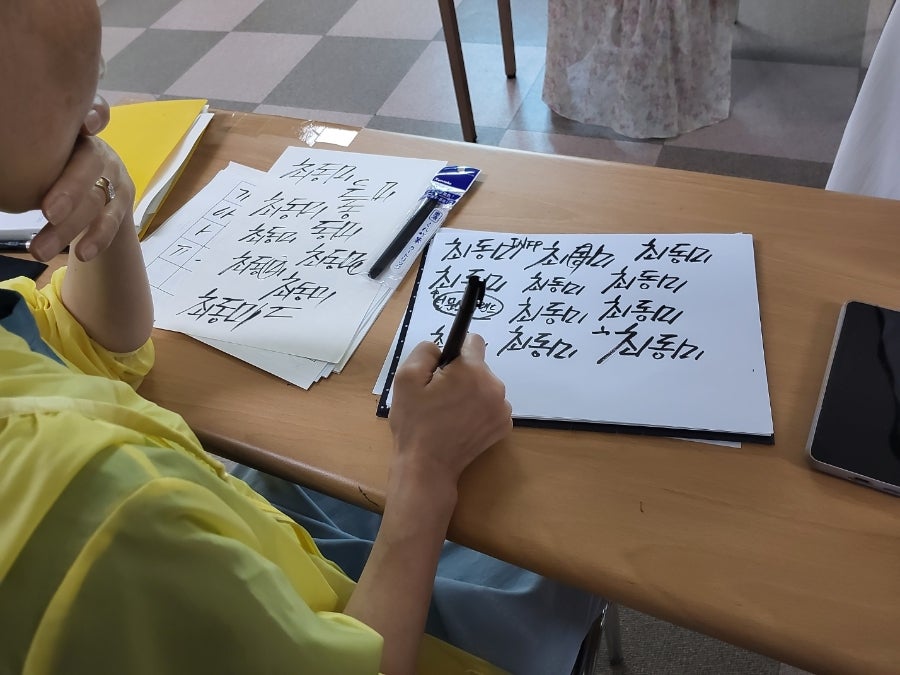 가
아
최동미 드 미
최동미 동
최동미 동미
최동미 최동미
최동미
최동미
최동미 INFP 최동미 최동미
최동미 최동미 최동미
최동미 최동미
최동미 최동미